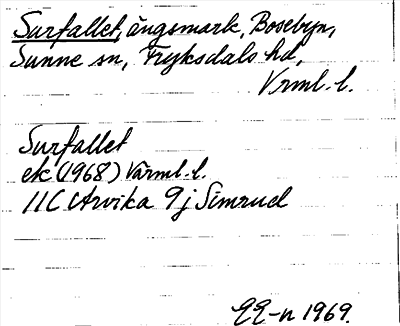 Surfallet, ängsmark, Bosebyn,
Sunne sn, Fryksdals hd,
Vrml. l.
Surfallet
ek (1968) Värml. l.
11C Arvika 9j Simrud
EE-n 1969.